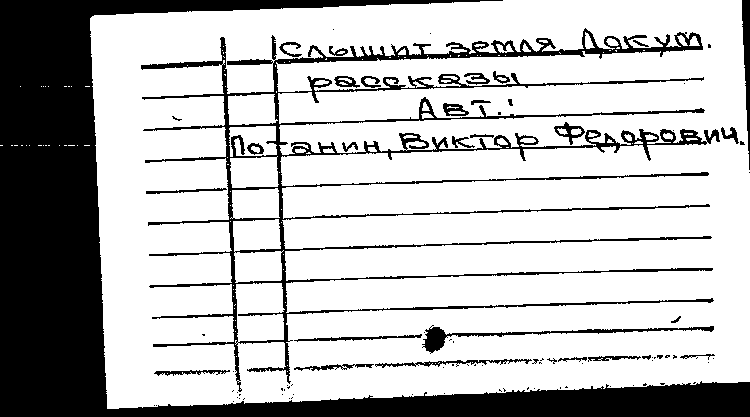 Слышит земля. Докум.
рассказы
Авт.:
Потанин, Виктор Федорович.